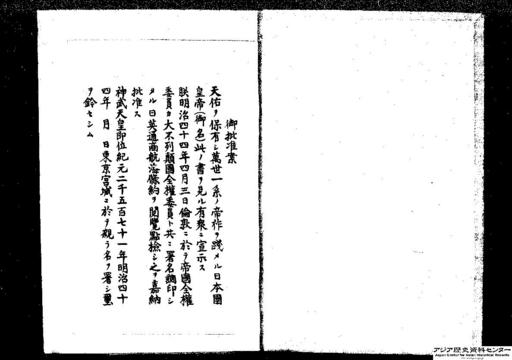 御批准案
天佑ヲ保有シ萬世一系ノ帝祚ヲ踐メル日本國
皇帝(御名)此ノ書ヲ見ル有衆ニ宣示ス
朕明治四十四年四月三日倫敦ニ於テ帝國全權
委員カ大不列顛國全權委員ト共ニ署名調印シ
タル日英通商航海條約ヲ閲覽點檢シ之ヲ嘉納
批准ス
神武天皇即位紀元二千五百七十一年明治四十
四年 月 日東京宮城ニ於テ親ラ名ヲ署シ璽
ヲ鈐セシム
アジア歴史資料センター
Japan Center for Asian Historical Records